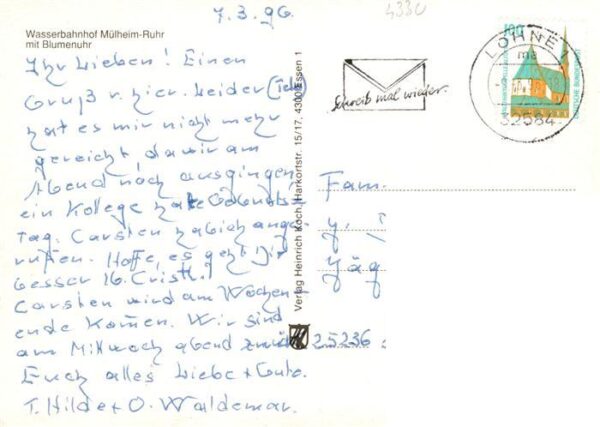 7.3.96
4330
Wasserbahnhof Mülheim-Ruhr
mit Blumenuhr
Ihr Lieben! Einen
Gruß v. hier. Leider (Tel)
hat es mir nicht mehr
gereicht, da wir am
Abend noch ausgingen
ein Kollege hatte Geburts-
tag. Carsten hab ich ange-
rufen. Hoffe, es geht Dir
besser
Carsten wird am Wochen-
ende kommen. Wir sind
am Mittwoch abend zurück
Euch alles Liebe + Gute.
T. Hilde + O. Waldemar.
Verlag Heinrich Koch, Harkortstr. 15/17, 4300 Essen 1
Schreib mal wieder.
LÖHNE
ma
32584
100
DEUTSCHE BUNDESPOST
Fam.
25236